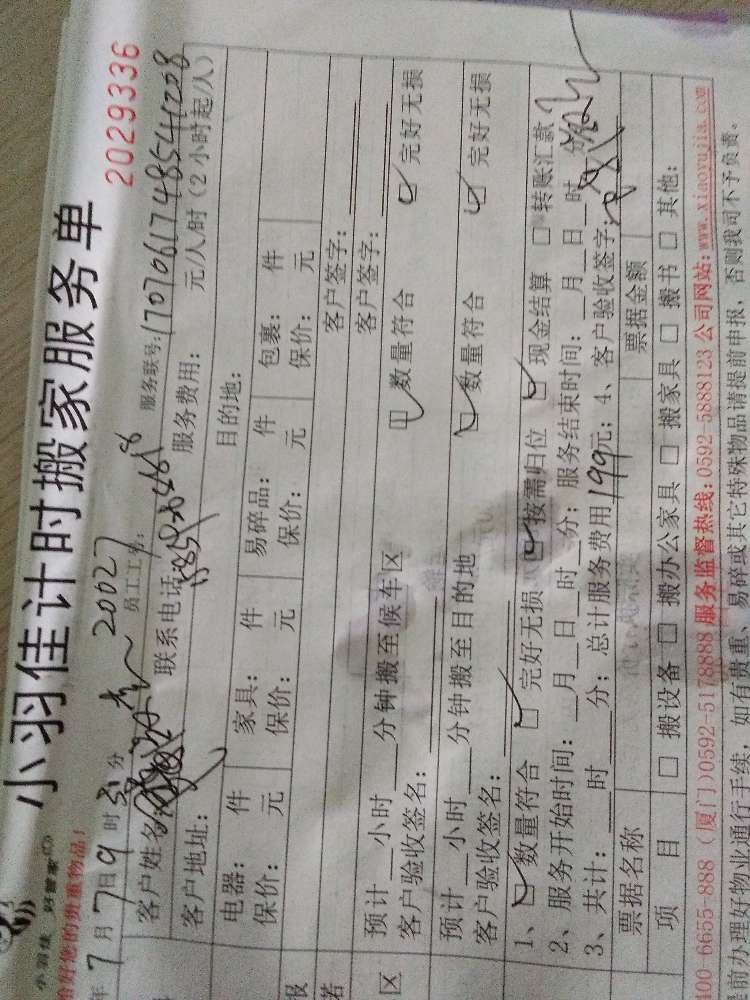 小羽佳 好管家
小羽佳计时搬家服务单
2029336
给好您的贵重物品！
年7月7日9时 分
20027
员工工号：
服务联号：17070617485541208
客户姓名：
联系电话：
服务费用： 元/人/时（2小时起/人）
客户地址：
目的地：
电器： 件 家具： 件 易碎品： 件 包裹： 件
保价： 元 保价： 元 保价： 元 保价： 元
报
客户签字：
诺
客户签字：
预计 小时 分钟搬至候车区 数量符合 完好无损
区 客户验收签名：
预计 小时 分钟搬至目的地 数量符合 完好无损
客户验收签名：
1、 数量符合 完好无损 按需归位 现金结算 转账汇款
2、服务开始时间： 月 日 时 分；服务结束时间： 月 日 时 分
3、共计： 时 分；总计服务费用199元；4、客户验收签字：
票据名称 票据金额
项 目 搬设备 搬办公家具 搬家具 搬书 其他：
00-6655-888（厦门）0592-5178888 服务监督热线：0592-5888123 公司网站：www.xiaoyujia.com
前办理好物业通行手续，如有贵重、易碎或其它特殊物品请提前申报，否则我司不予负责。